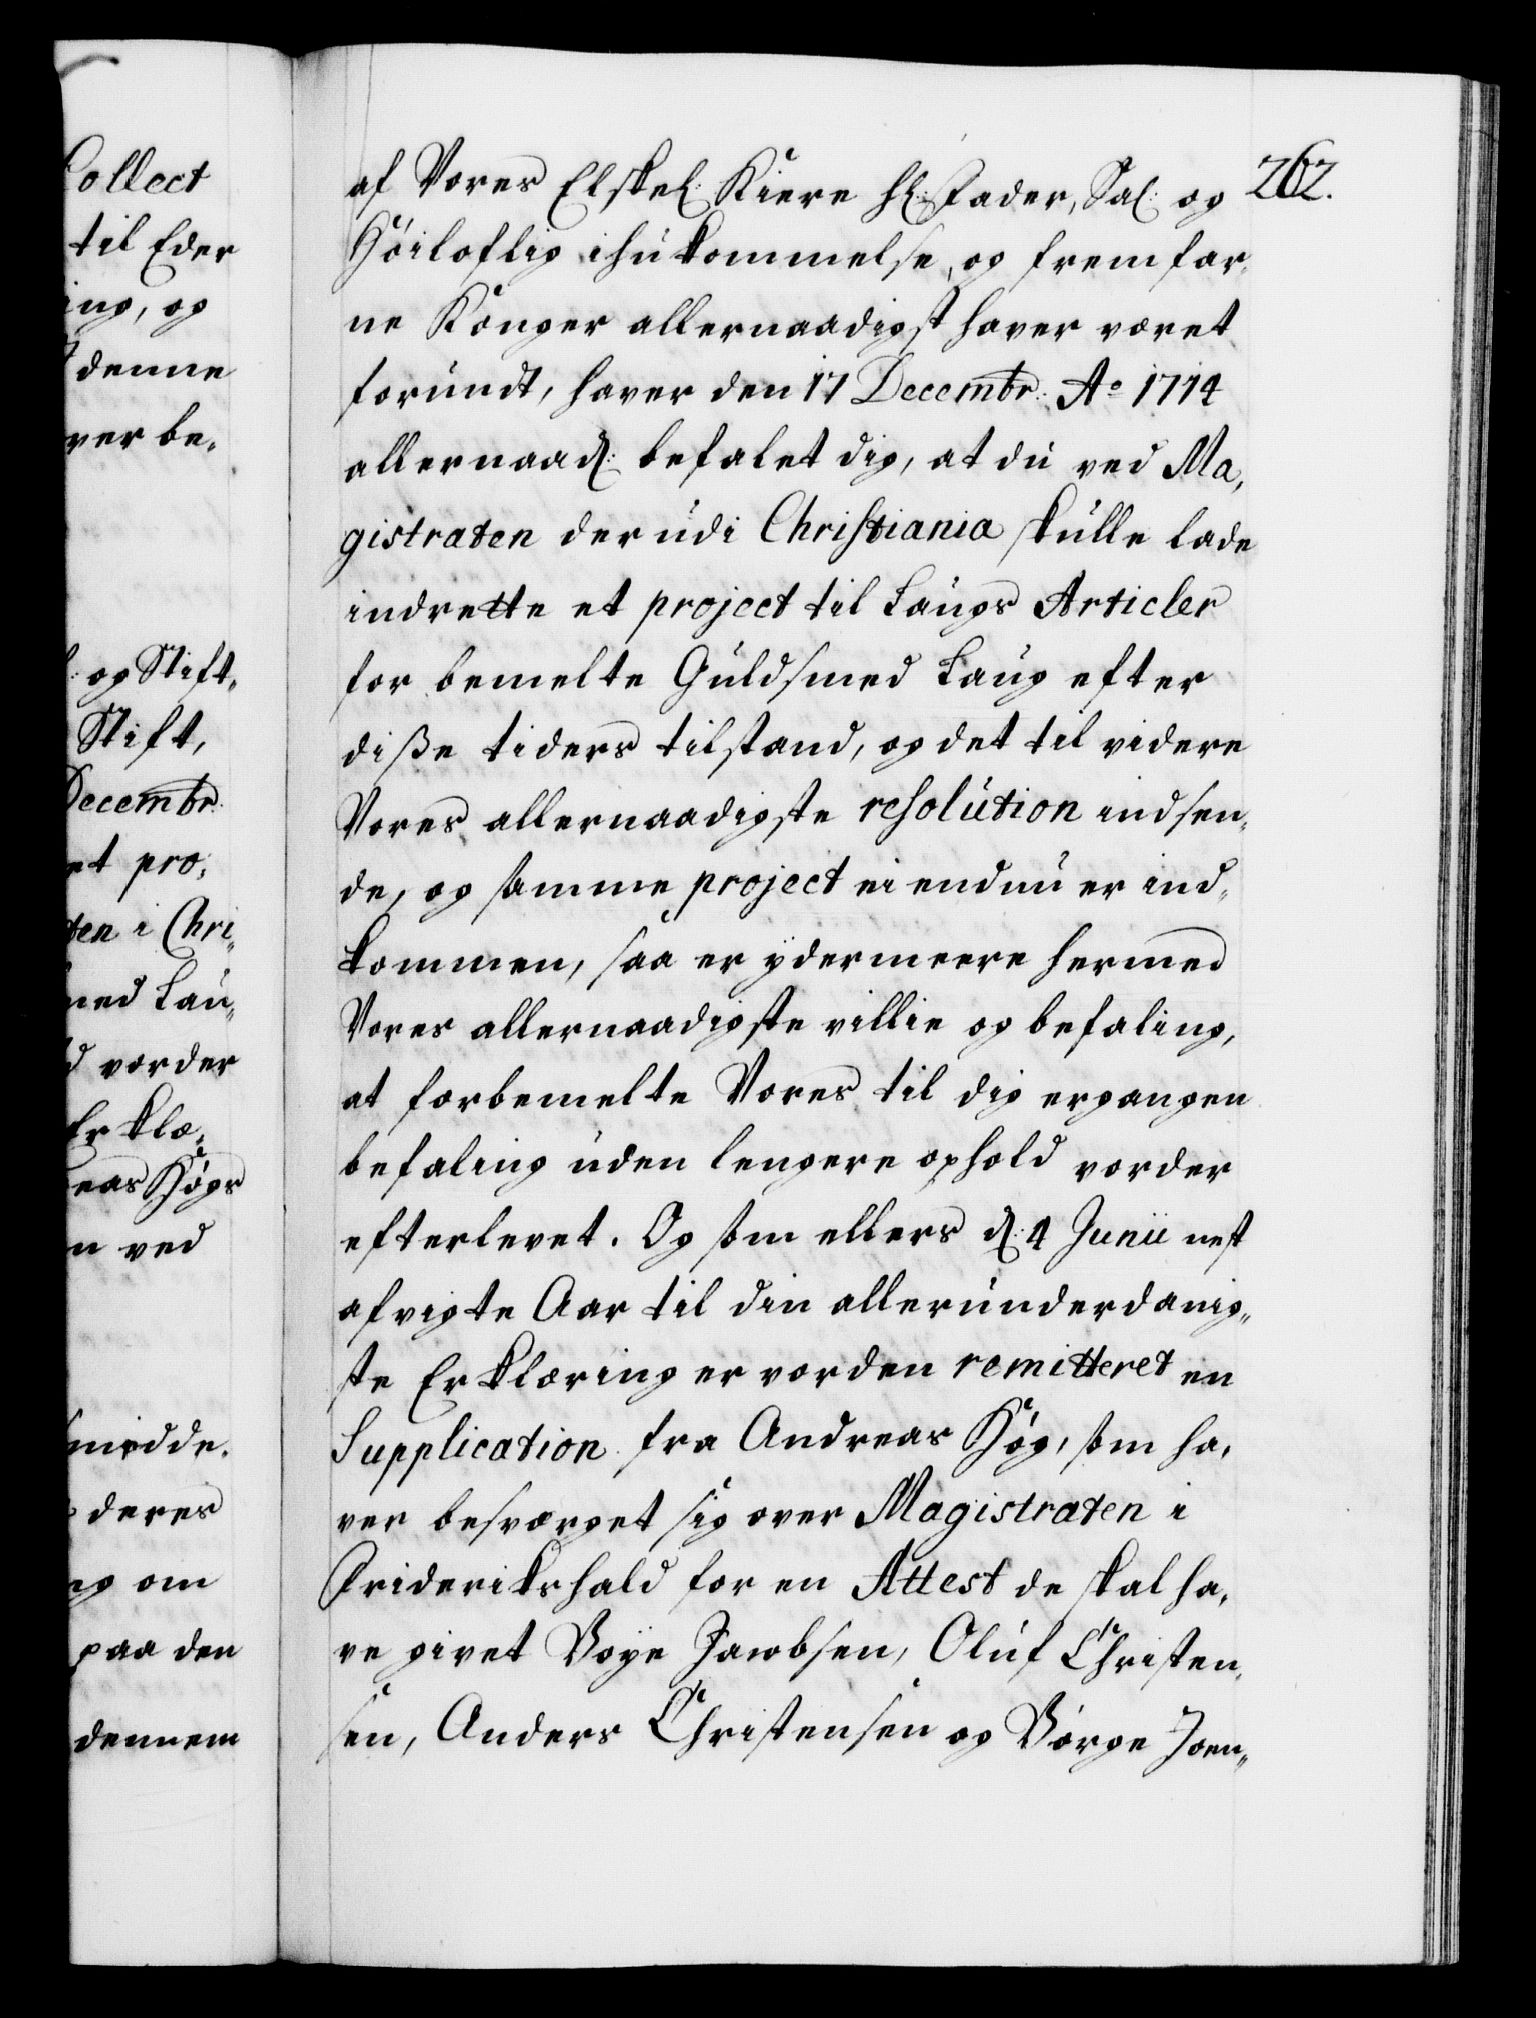 Collect
til Eder
ing, og
denne
ver be,
og Stift,,
Stift,
Decembr:
et pro,
ten i Chri,,
med Lau,,
d vorder
Erklæ,
eas Høgs
n ved
smedde.
deres
ng om
paa den
dennem
262.
af Vores Elskel: Kiere Hl: Fader, Sal: og
Höiloflig ihukommelse, og fremfar,
ne Konger allernaadigst haver været
forundt, haver den 17 Decembr: Ao 1714
allernaad: befalet dig, at du ved Ma,
gistraten der udi Christiania skulle lade
indrette et project til Laugs Articler
for bemelte Guldsmed Laug efter
disse tiders tilstand, og det til videre
Vores allernaadigste resolution indsen,
de, og samme project ei endnu er ind,
kommen, saa er ydermeere hermed
Vores allernaadigste villie og befaling,
at forbemelte Vores til dig ergangen
befaling uden lengere ophold vorder
efterlevet. Og som ellers d: 4 Junii nest
afvigte Aar til din allerunderdanig,,
ste Erklæring er vorden remitteret en
Supplication fra Andreas Høg, som ha,
ver besværget sig over Magistraten i
Friderikshald for en Attest de skal ha,
ve givet Boye Jacobsen, Oluf Christen,
sen, Anders Christensen og Börge Joen,,